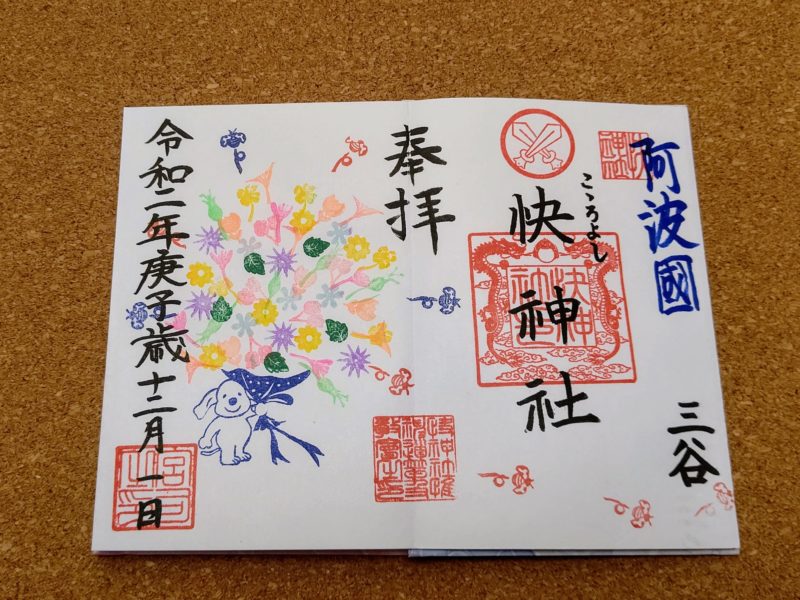 阿波國
三谷
こゝろよし
快神社
奉拝
令和二年庚子歳十二月一日